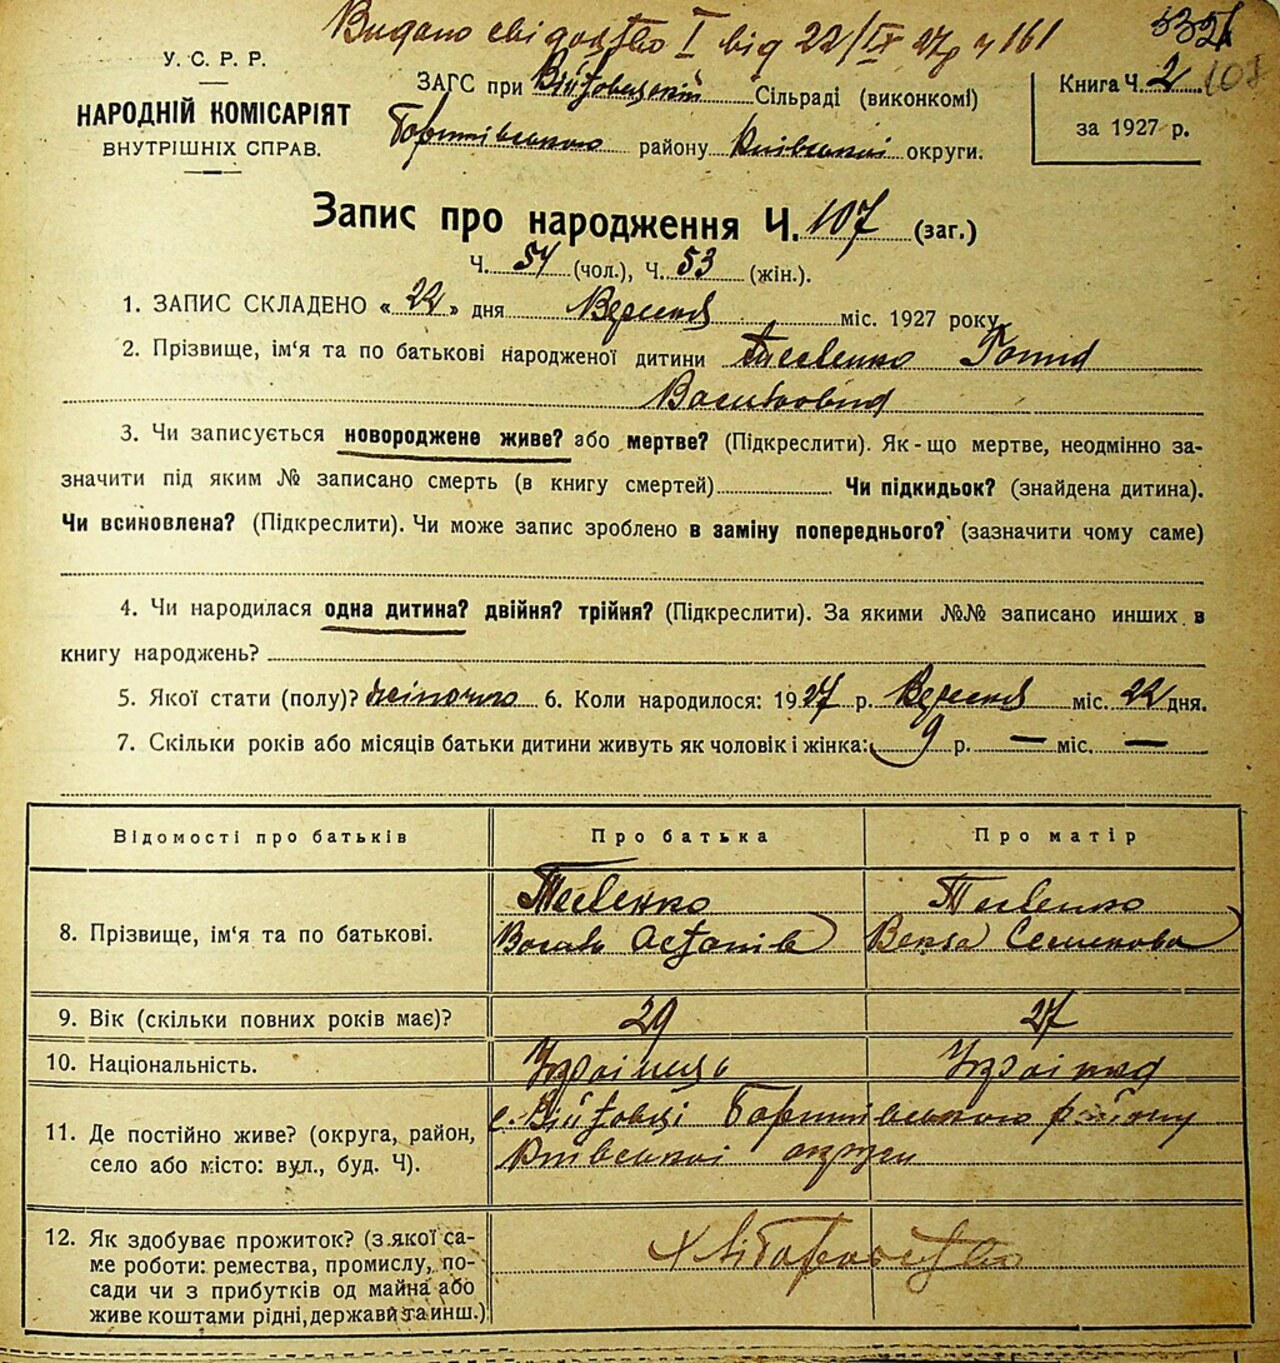 Видано свідоцтво I від 22/IX 27р ч 161
У. С. Р. Р.
НАРОДНІЙ КОМІСАРІЯТ
ВНУТРІШНІХ СПРАВ.
ЗАГС при Війтовецькій Сільраді (виконкомі)
Баришівського району Київської округи.
Книга Ч. 2 108
за 1927 р.
Запис про народження Ч. 107 (заг.)
Ч. 54 (чол.), Ч. 53 (жін.).
1. ЗАПИС СКЛАДЕНО «22» дня Вересня міс. 1927 року
2. Прізвище, ім'я та по батькові народженої дитини Тесленко Ганна
Василівна
3. Чи записується новороджене живе? або мертве? (Підкреслити). Як-що мертве, неодмінно за-
значити під яким № записано смерть (в книгу смертей) Чи підкидьок? (знайдена дитина).
Чи всиновлена? (Підкреслити). Чи може запис зроблено в заміну попереднього? (зазначити чому саме)
4. Чи народилася одна дитина? двійня? трійня? (Підкреслити). За якими №№ записано инших в
книгу народжень?
5. Якої стати (полу)? жіночого 6. Коли народилося: 1927 р. Вересня міс. 22 дня.
7. Скільки років або місяців батьки дитини живуть як чоловік і жінка: 9 р. — міс. —
Відомості про батьків Про батька Про матір
8. Прізвище, ім'я та по батькові. Тесленко Тесленко
Василь Остапів Векла Семенова
9. Вік (скільки повних років має)? 29 27
10. Національність. Українець Українка
11. Де постійно живе? (округа, район, село або місто: вул., буд. Ч). с. Війтовці Баришівського району
Київської округи
12. Як здобуває прожиток? (з якої са-
ме роботи: ремества, промислу, по-
сади чи з прибутків од майна або
живе коштами рідні, держави та инш.) Хліборобство